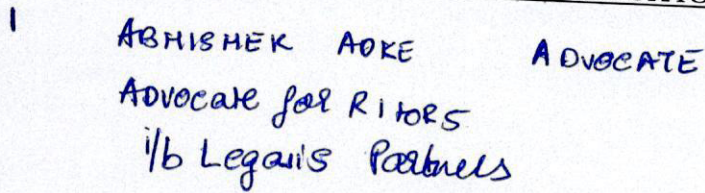 1 ABHISHEK ADKE ADVOCATE
Advocate for R1 to R5
i/b Legaris Partners